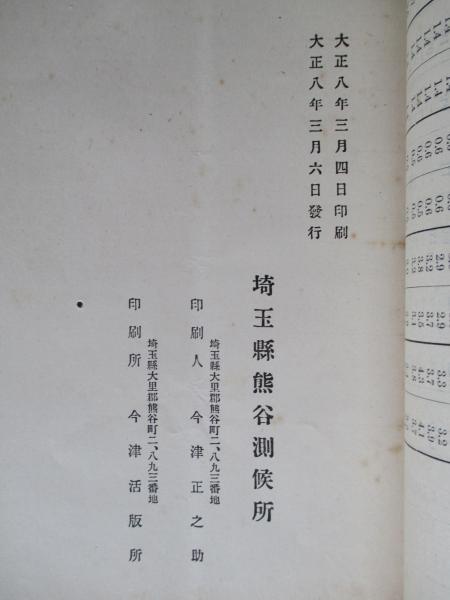 大正八年三月四日印刷
大正八年三月六日發行
埼玉縣熊谷測候所
埼玉縣大里郡熊谷町二、八九三番地
印刷人 今津正之助
埼玉縣大里郡熊谷町二、八九三番地
印刷所 今津活版所